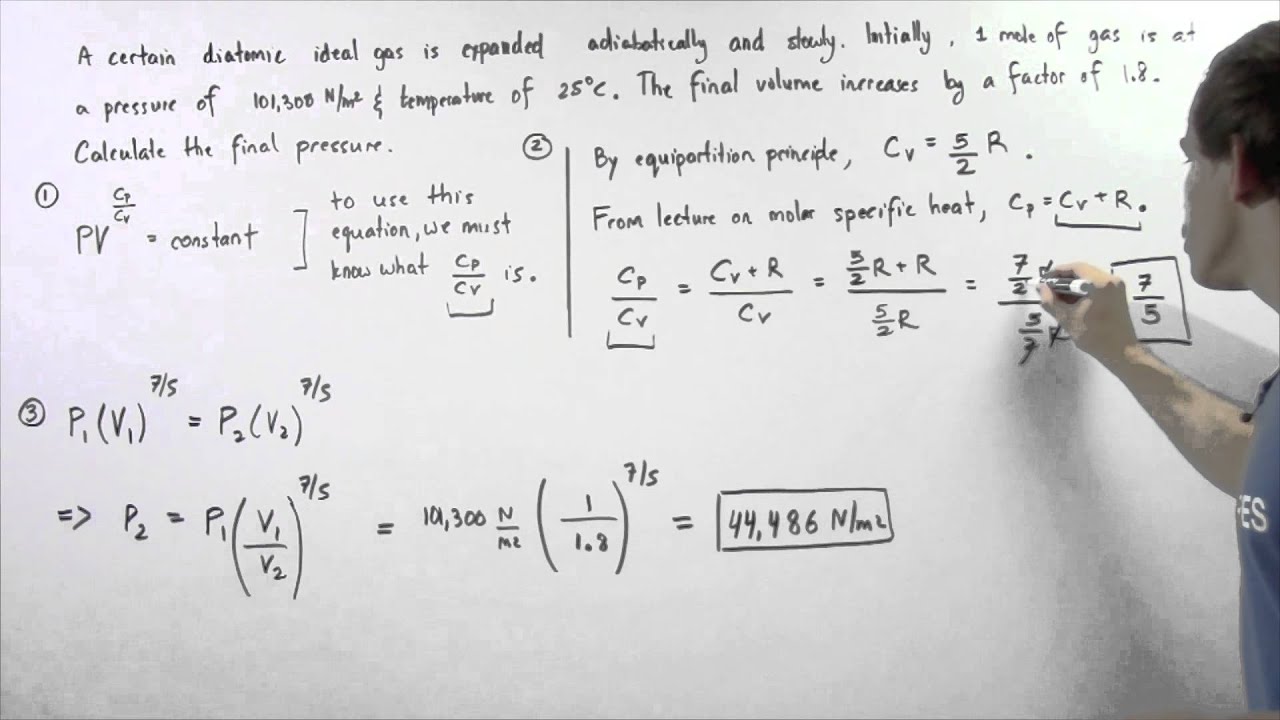 A certain diatomic ideal gas is expanded adiabatically and slowly. Initially, 1 mole of gas is at
a pressure of 101,300 N/m² & temperature of 25°C. The final volume increases by a factor of 1.8.
Calculate the final pressure.
① PV^(Cp/Cv) = constant ] to use this
equation, we must
know what Cp/Cv is.
② By equipartition principle, Cv = 5/2 R.
From lecture on molar specific heat, Cp = Cv + R.
Cp/Cv = (Cv + R)/Cv = (5/2 R + R)/(5/2 R) = (7/2 R)/(5/2 R) 7/5
③ P₁(V₁)^7/5 = P₂(V₂)^7/5
=> P₂ = P₁(V₁/V₂)^7/5 = 101,300 N/m² (1/1.8)^7/5 = 44,486 N/m²
ES